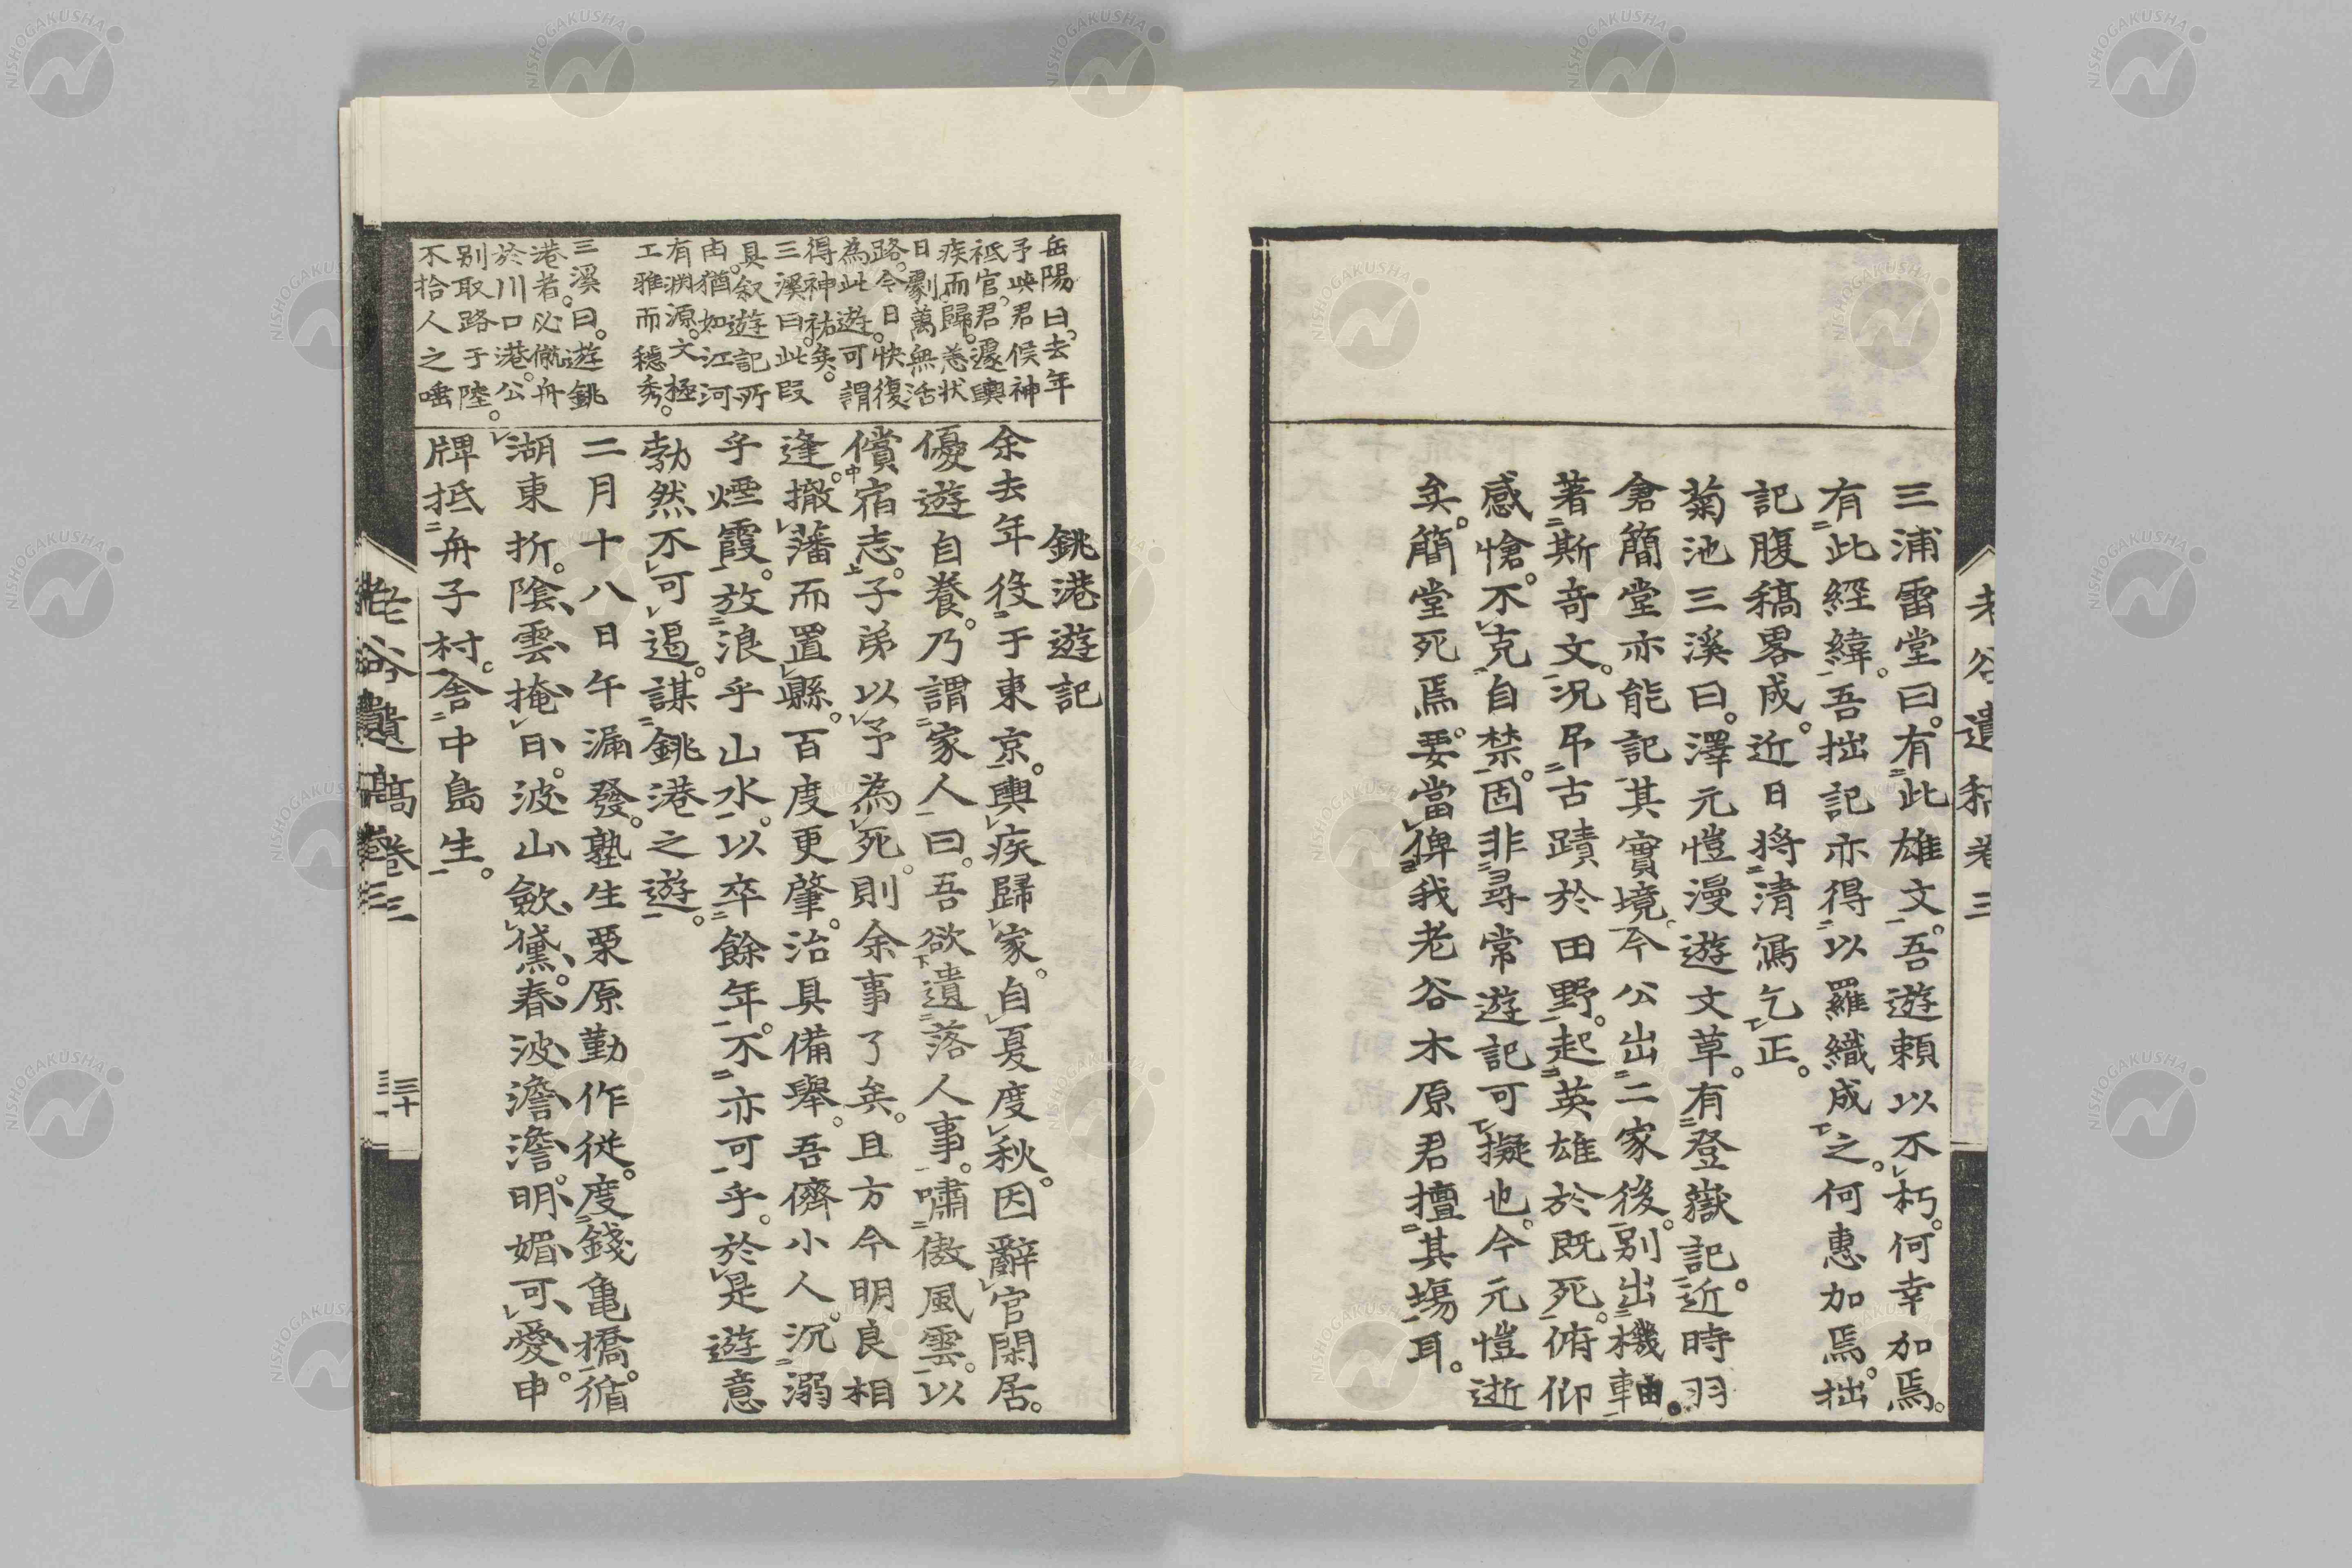 老谷遺稿卷三
三浦雷堂曰。有此雄文。吾遊頼以不朽。何幸加焉。
有此經緯。吾拙記亦得以羅織成之。何惠加焉。拙
記腹稿畧成。近日将清寫乞正。
菊池三溪曰。澤元愷漫遊文草。有登嶽記。近時羽
倉簡堂亦能記其實境。今公出二家後。別出機軸。
著斯奇文。況吊古蹟於田野。起英雄於既死。俯仰
感愴。不克自禁。固非尋常遊記可擬也。今元愷逝
矣。簡堂死焉。要當俾我老谷木原君擅其塲耳。
岳陽曰。去年
予與君候神
祗官。君遽輿
疾而歸。恙状
日劇。萬無活
路。今日快復
為此遊。可謂
得神祐矣。
三溪曰。此段
具叙遊記所
由。猶如江河
有渕源。文極
工雅而穏秀。
三溪曰。遊銚
港者。必僦舟
於川口港。公
別取路于陸。
不拾人之唾
銚港遊記
余去年役于東京。輿疾歸家。自夏度秋。因辭官閑居。
優遊自養。乃謂家人曰。吾欲遺落人事。嘯傲風雲。以
償宿志。子弟以予為死。則余事了矣。且方今明良相
逢。撤藩而置縣。百度更肇。治具備舉。吾儕小人。沉溺
乎煙霞。放浪乎山水。以卒餘年。不亦可乎。於是遊意
勃然不可遏。謀銚港之遊。
二月十八日午漏發。塾生栗原勤作従。度錢亀橋。循
湖東折。陰雲掩日。波山歛黛。春波澹澹。明媚可愛。申
牌抵舟子村。舎中島生。
老谷遺高卷三
三十